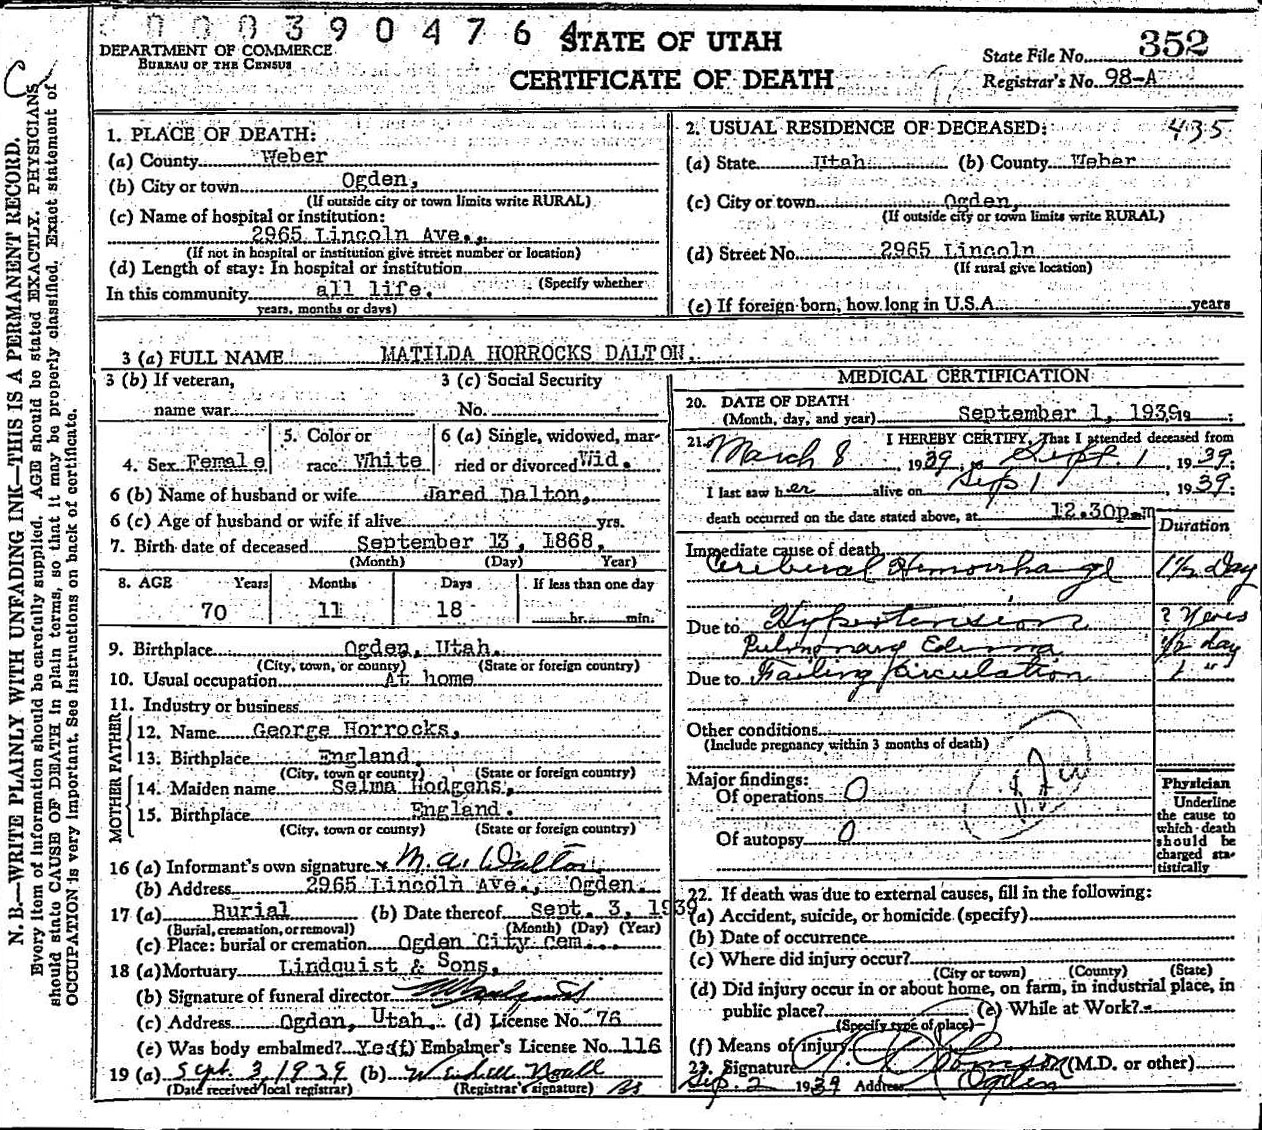 0003904764
STATE OF UTAH
CERTIFICATE OF DEATH
DEPARTMENT OF COMMERCE
BUREAU OF THE CENSUS
State File No. 352
Registrar's No. 98-A
N. B.—WRITE PLAINLY WITH UNFADING INK—THIS IS A PERMANENT RECORD.
Every item of information should be carefully supplied. AGE should be stated EXACTLY. PHYSICIANS
should state CAUSE OF DEATH in plain terms, so that it may be properly classified. Exact statement of
OCCUPATION is very important. See instructions on back of certificate.
1. PLACE OF DEATH:
(a) County Weber
(b) City or town Ogden,
(If outside city or town limits write RURAL)
(c) Name of hospital or institution:
2965 Lincoln Ave.,
(If not in hospital or institution give street number or location)
(d) Length of stay: In hospital or institution
(Specify whether
In this community all life.
years, months or days)
2. USUAL RESIDENCE OF DECEASED: 435
(a) State Utah (b) County Weber
(c) City or town Ogden,
(If outside city or town limits write RURAL)
(d) Street No. 2965 Lincoln
(If rural give location)
(e) If foreign born, how long in U.S.A. years
3 (a) FULL NAME MATILDA HORROCKS DALTON.
3 (b) If veteran,
name war
3 (c) Social Security
No.
4. Sex Female
5. Color or
race White
6 (a) Single, widowed, mar-
ried or divorced Wid.
6 (b) Name of husband or wife Jared Dalton,
6 (c) Age of husband or wife if alive yrs.
7. Birth date of deceased September 13, 1868.
(Month) (Day) Year)
8. AGE Years Months Days If less than one day
70 11 18 hr. min.
9. Birthplace Ogden, Utah.
(City, town, or county) (State or foreign country)
10. Usual occupation At home
11. Industry or business
FATHER
12. Name George Horrocks,
13. Birthplace England
(City, town or county) (State or foreign country)
MOTHER
14. Maiden name Selma Hodgens,
15. Birthplace England.
(City, town or county) (State or foreign country)
16 (a) Informant's own signature x M. A. Dalton
(b) Address 2965 Lincoln Ave., Ogden.
17 (a) Burial (b) Date thereof Sept. 3, 1939
(Burial, cremation, or removal) (Month) (Day) (Year)
(c) Place: burial or cremation Ogden City cem.
18 (a) Mortuary Lindquist & Sons,
(b) Signature of funeral director
(c) Address Ogden, Utah. (d) License No. 76
(e) Was body embalmed? Yes (f) Embalmer's License No. 116
19 (a) Sept. 3, 1939 (b) Wendell Noall
(Date received local registrar) (Registrar's signature)
MEDICAL CERTIFICATION
20. DATE OF DEATH
(Month, day, and year) September 1, 1939 19 :
21. I HEREBY CERTIFY, That I attended deceased from
March 8, 1939, to Sept. 1, 1939:
I last saw her alive on Sep 1, 1939:
death occurred on the date stated above, at 12.30p.m
Duration
Immediate cause of death
Cerebral Hemorrhange 1½ Day
Due to Hypertension ? Years
Pulmonary Edema ½ day
Due to Failing Circulation 1 "
Other conditions
(Include pregnancy within 3 months of death)
Major findings:
Of operations 0
Of autopsy 0
Physician
Underline
the cause to
which death
should be
charged sta-
tistically
22. If death was due to external causes, fill in the following:
(a) Accident, suicide, or homicide (specify)
(b) Date of occurrence
(c) Where did injury occur?
(City or town) (County) (State)
(d) Did injury occur in or about home, on farm, in industrial place, in
public place? (e) While at Work?
(Specify type of place)
(f) Means of injury
23. Signature (M.D. or other)
Sep. 2 1939 Address Ogden